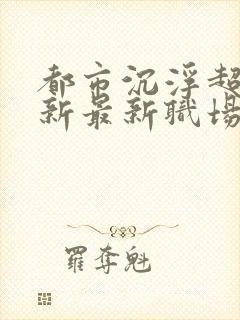 都市沉浮超
新最新職場
羅奪魁